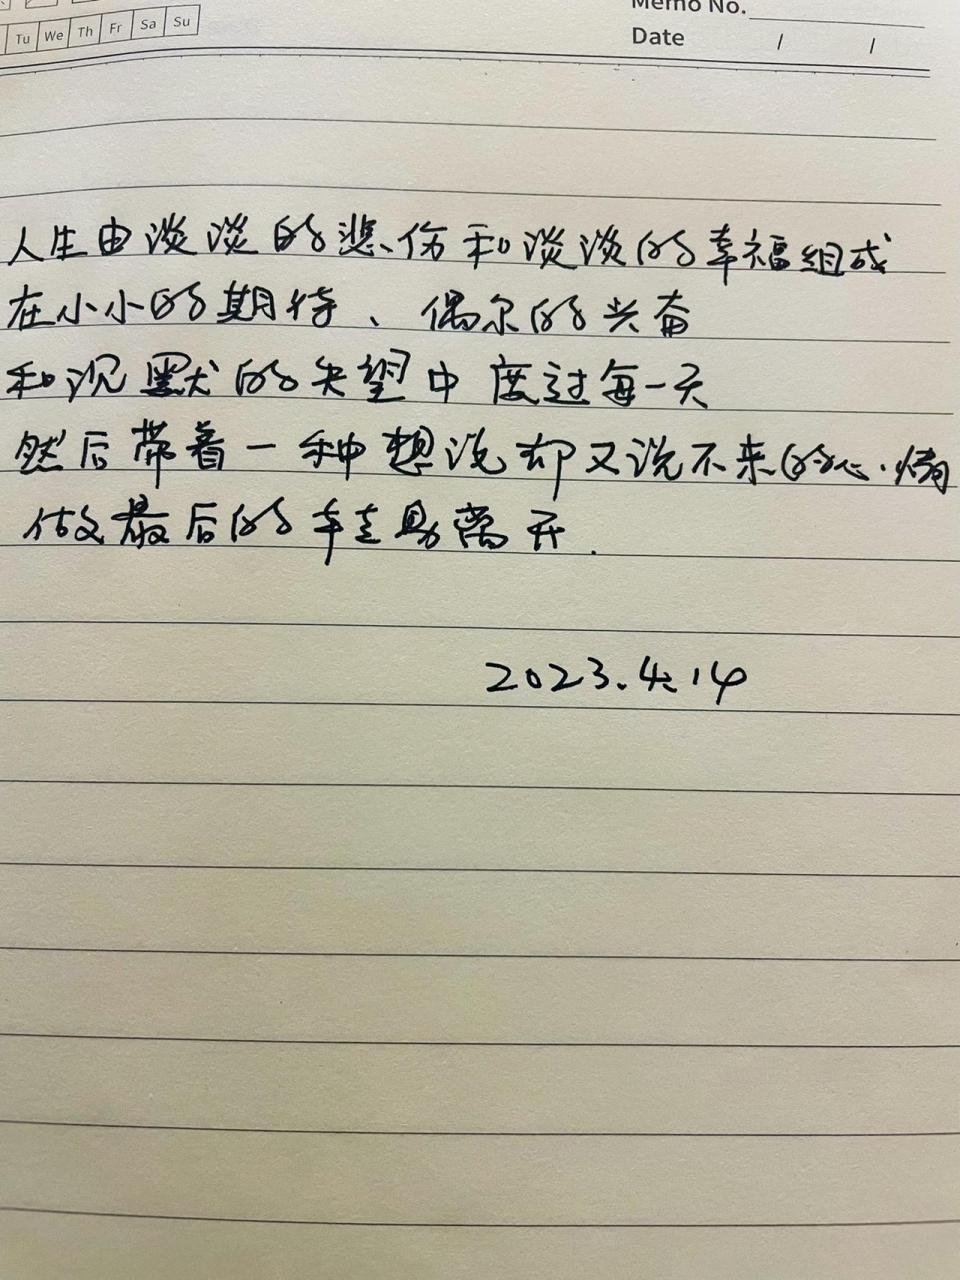 Memo No.
Tu We Th Fr Sa Su
Date / /
人生由淡淡的悲伤和淡淡的幸福组成
在小小的期待、偶尔的兴奋
和沉默的失望中度过每一天
然后带着一种想说却又说不来的心情
做最后的转身离开.
2023.4.14